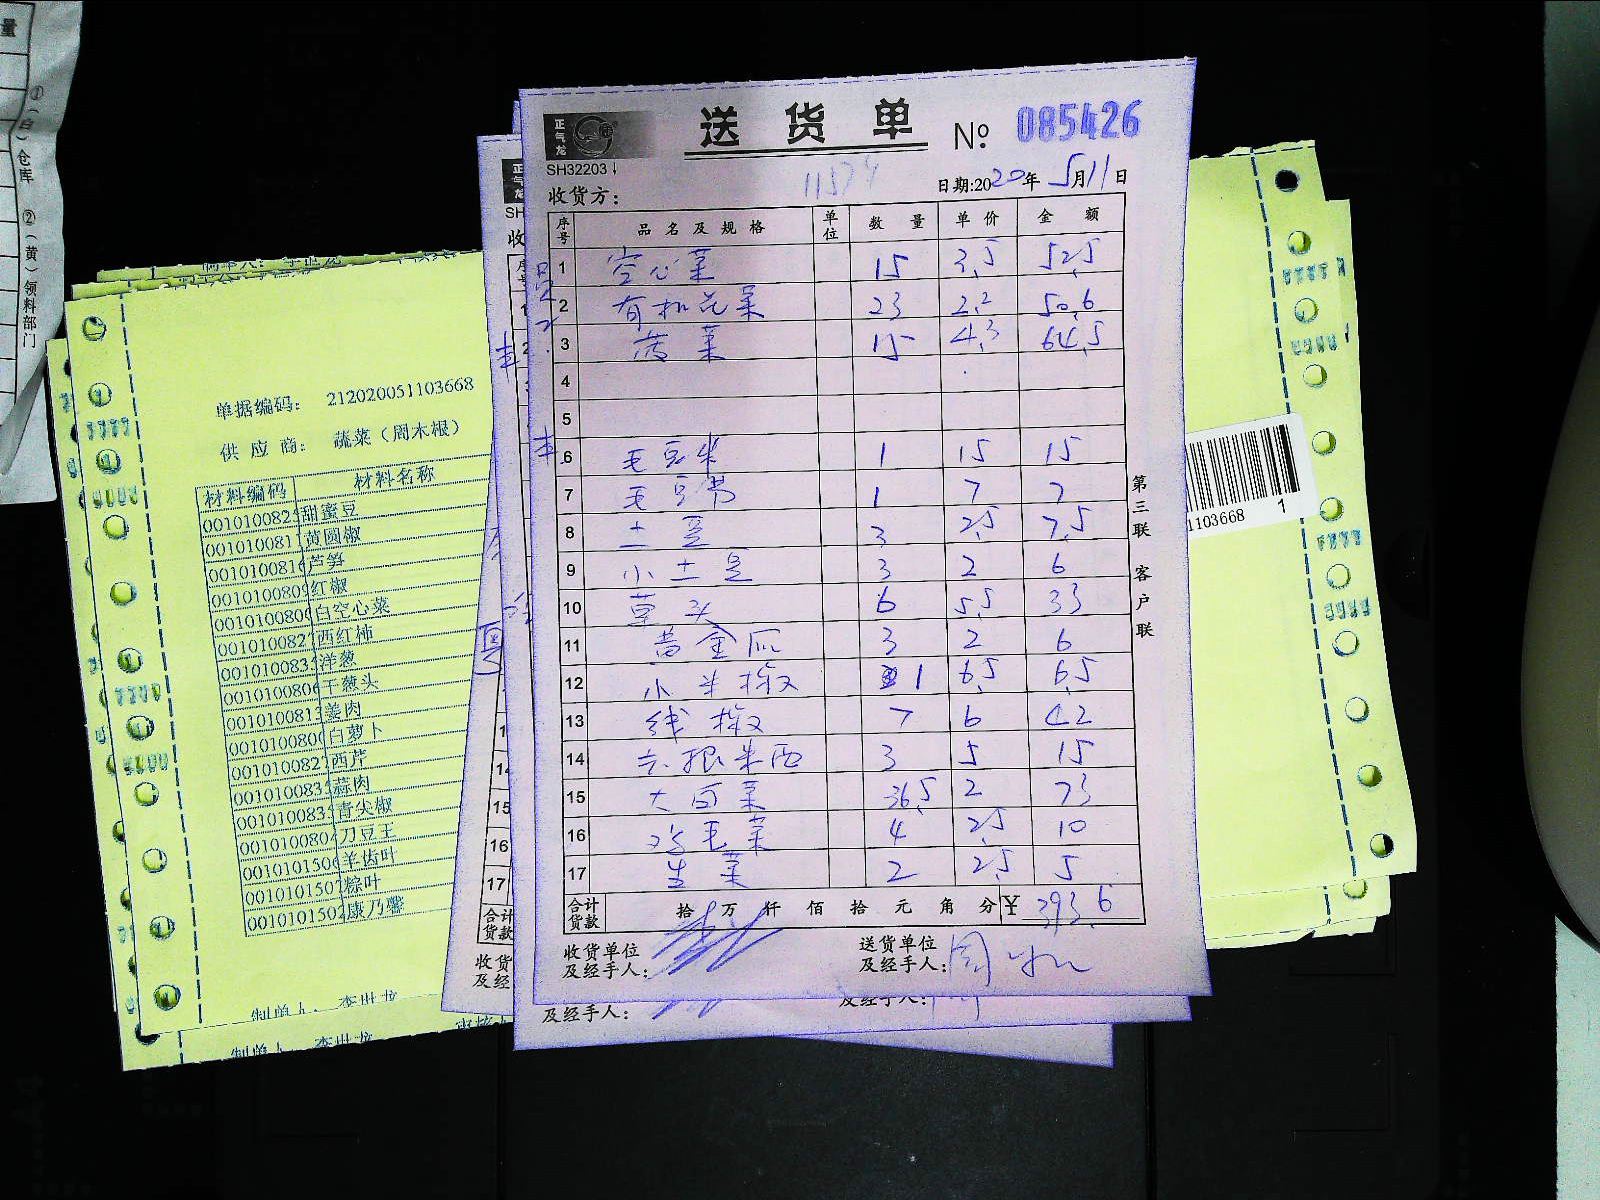 量
①(白)仓库 ②(黄)领料部门
单据编码: 212020051103668
供应商: 蔬菜(周木根)
材料编码 材料名称
001010082 甜蜜豆
001010081 黄圆椒
001010081 芦笋
001010080 红椒
001010080 白空心菜
001010082 西红柿
001010083 洋葱
001010080 干葱头
001010081 姜肉
001010080 白萝卜
001010082 西芹
001010083 蒜肉
001010083 青尖椒
001010080 刀豆王
001010150 羊齿叶
001010150 粽叶
001010150 康乃馨
制单人: 李世龙
制单人: 李世龙
正气龙
送货单 № 085426
SH32203
11574
收货方: 日期:2020年5月11日
序号 品名及规格 单位 数量 单价 金额
1 空心菜 15 3.5 52.5
2 有机花菜 23 2.2 50.6
3 菠菜 15 4.3 64.5
4
5
6 毛豆米 1 15 15
7 毛豆节 1 7 7
8 土豆 3 2.5 7.5
9 小土豆 3 2 6
10 草头 6 5.5 33
11 黄金瓜 3 2 6
12 小米椒 1 6.5 6.5
13 线椒 7 6 42
14 3 5 15
15 大白菜 36.5 2 73
16 鸡毛菜 4 2.5 10
17 生菜 2 2.5 5
合计货款 拾万仟佰拾元角分 ¥ 393.6
收货单位及经手人: 送货单位及经手人:
第三联 客户联
及经手人: 及经手人:
1103668 1